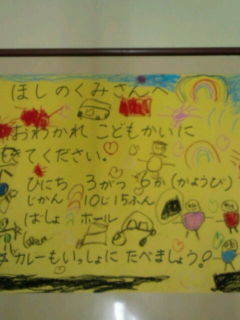 ほしのくみさんへ
おわかれ こどもかいに
きてください。
ひにち 3がつ 6か(かようび)
じかん 10じ15ふん
ばしょ ホール
カレーもいっしょに たべましょう!